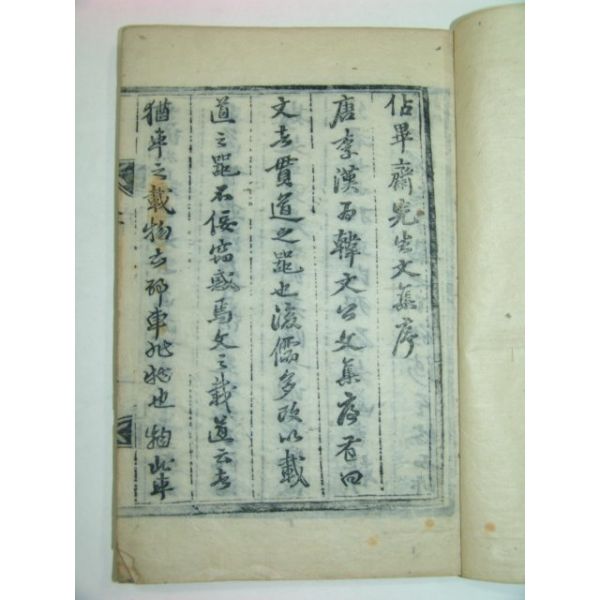 佔畢齋先生文集序
唐李漢爲韓文公文集序有曰
文者貫道之器也後儒多改以載
道之器不佞窃惑焉文之載道云者
猶車之載物云耶車非物也物非車